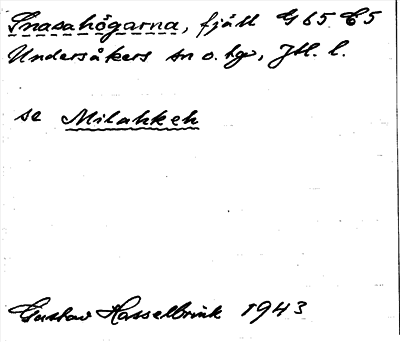 Snasahögarna, fjäll G 65 C5
Undersåkers sn o. hd, Jtl. l.
se Milahkeh
Gustav Hasselbrink 1943